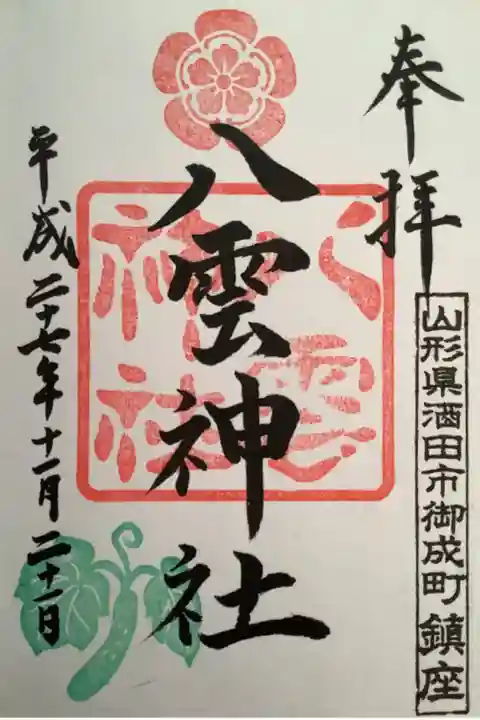 奉拝
山形県酒田市御成町 鎮座
八雲神社
八雲神社
平成二十七年十一月二十一日